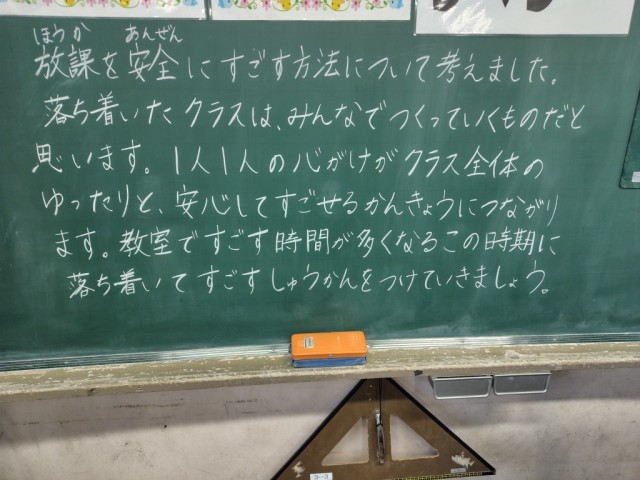 ほうか あんぜん
放課を安全にすごす方法について考えました。
落ち着いたクラスは、みんなでつくっていくものだと
思います。1人1人の心がけがクラス全体の
ゆったりと、安心してすごせるかんきょうにつながり
ます。教室ですごす時間が多くなるこの時期に
落ち着いてすごすしゅうかんをつけていきましょう。
3-3